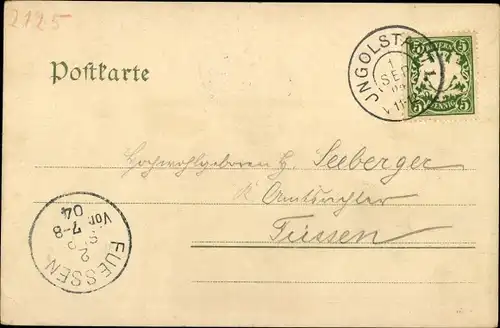 2125
Postkarte
JNGOLSTA
1
SEP
BAYERN
5 5
5 5
PFENNIG
Hochwohlgeboren H. Seeberger
K. Amtsrichter
Füssen
FUESSEN
2
SEP
Vor. 7-8
04